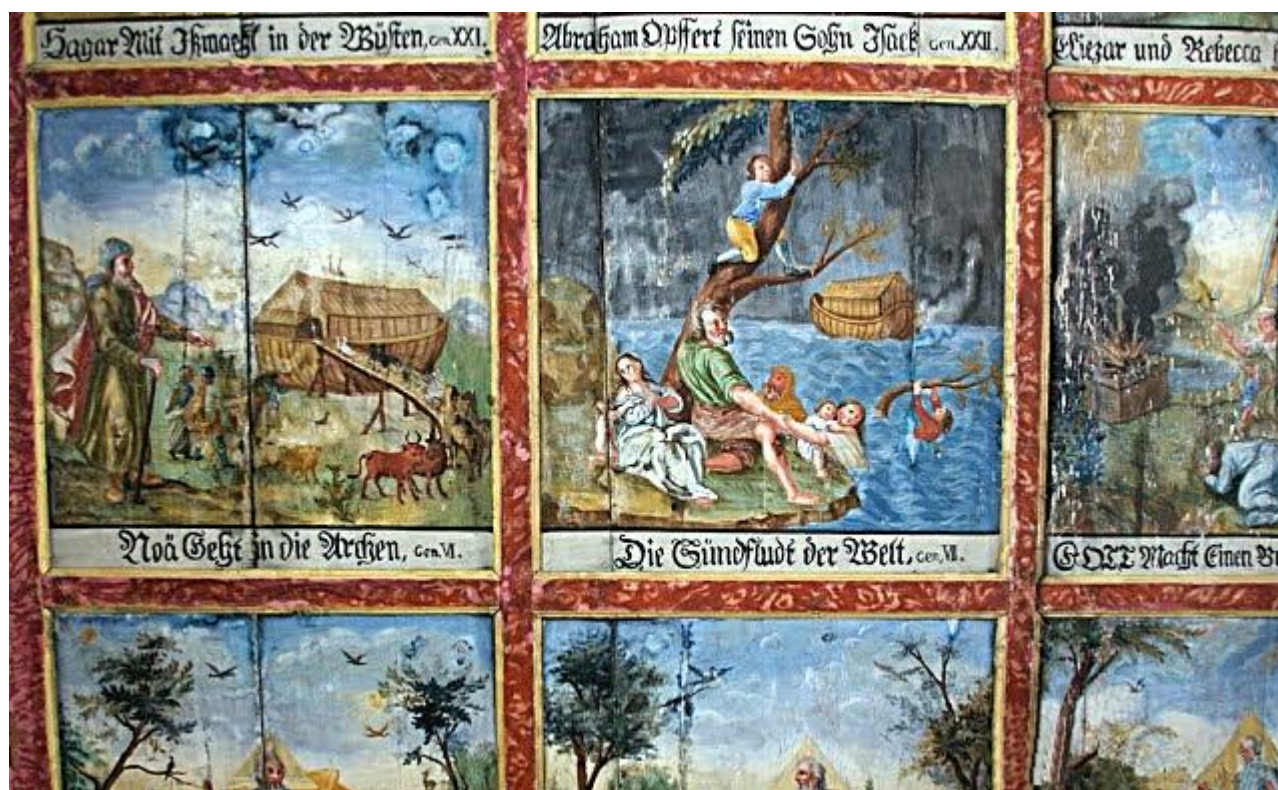 Hagar Mit Ißmaehl in der Wüsten, Gen. XXI.
Abraham Opffert seinen Sohn Isack Gen. XXII.
Eliezar und Rebecca
Noä Geht in die Archen, Gen. VI.
Die Sündfludt der Welt, Gen. VII.
GOTT Macht Einen